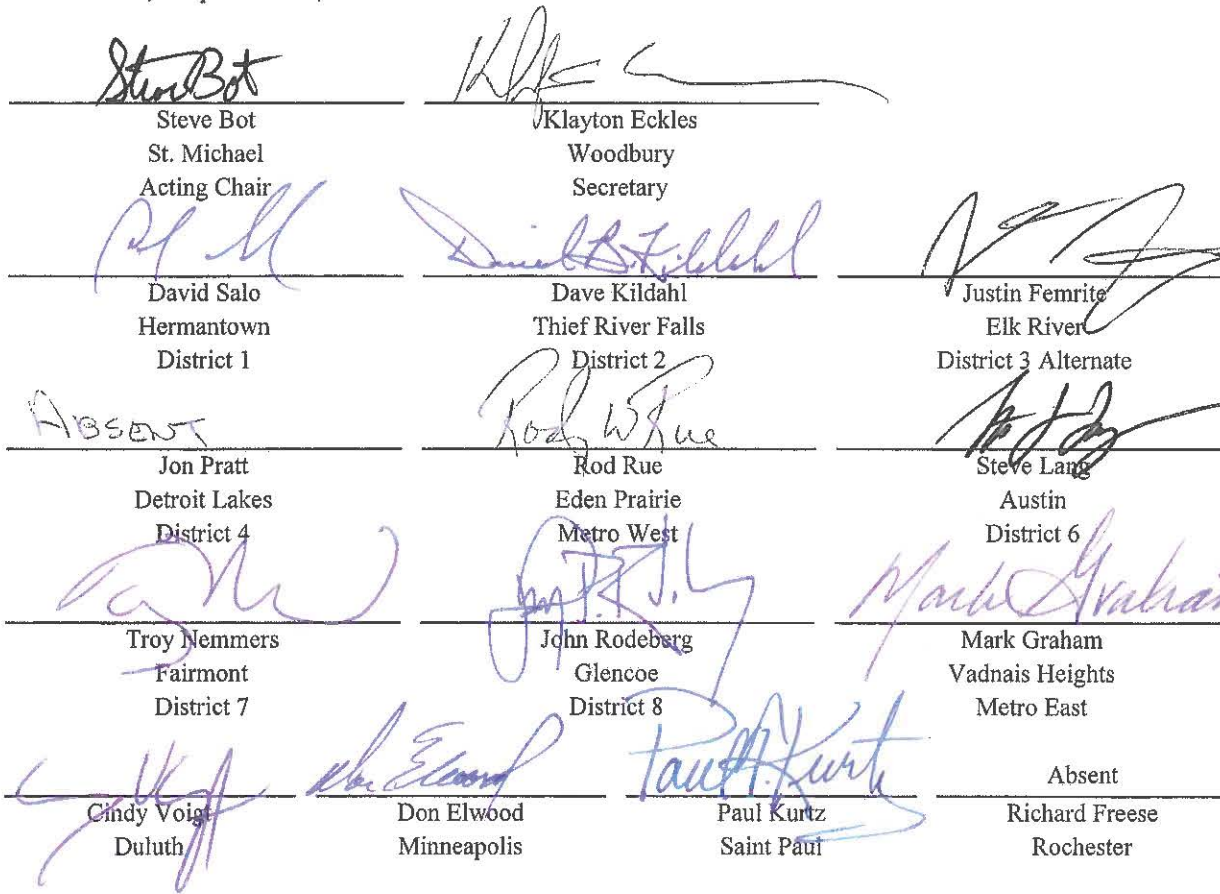 Steve Bot
Steve Bot
St. Michael
Acting Chair
Klayton Eckles
Woodbury
Secretary
David Salo
Hermantown
District 1
Daniel B. Kildahl
Dave Kildahl
Thief River Falls
District 2
Justin Femrite
Elk River
District 3 Alternate
ABSENT
Jon Pratt
Detroit Lakes
District 4
Rody W Rue
Rod Rue
Eden Prairie
Metro West
Steve Lang
Austin
District 6
Troy Nemmers
Fairmont
District 7
John Rodeberg
Glencoe
District 8
Mark Graham
Mark Graham
Vadnais Heights
Metro East
Cindy Voigt
Duluth
Don Elwood
Don Elwood
Minneapolis
Paul M. Kurtz
Paul Kurtz
Saint Paul
Absent
Richard Freese
Rochester